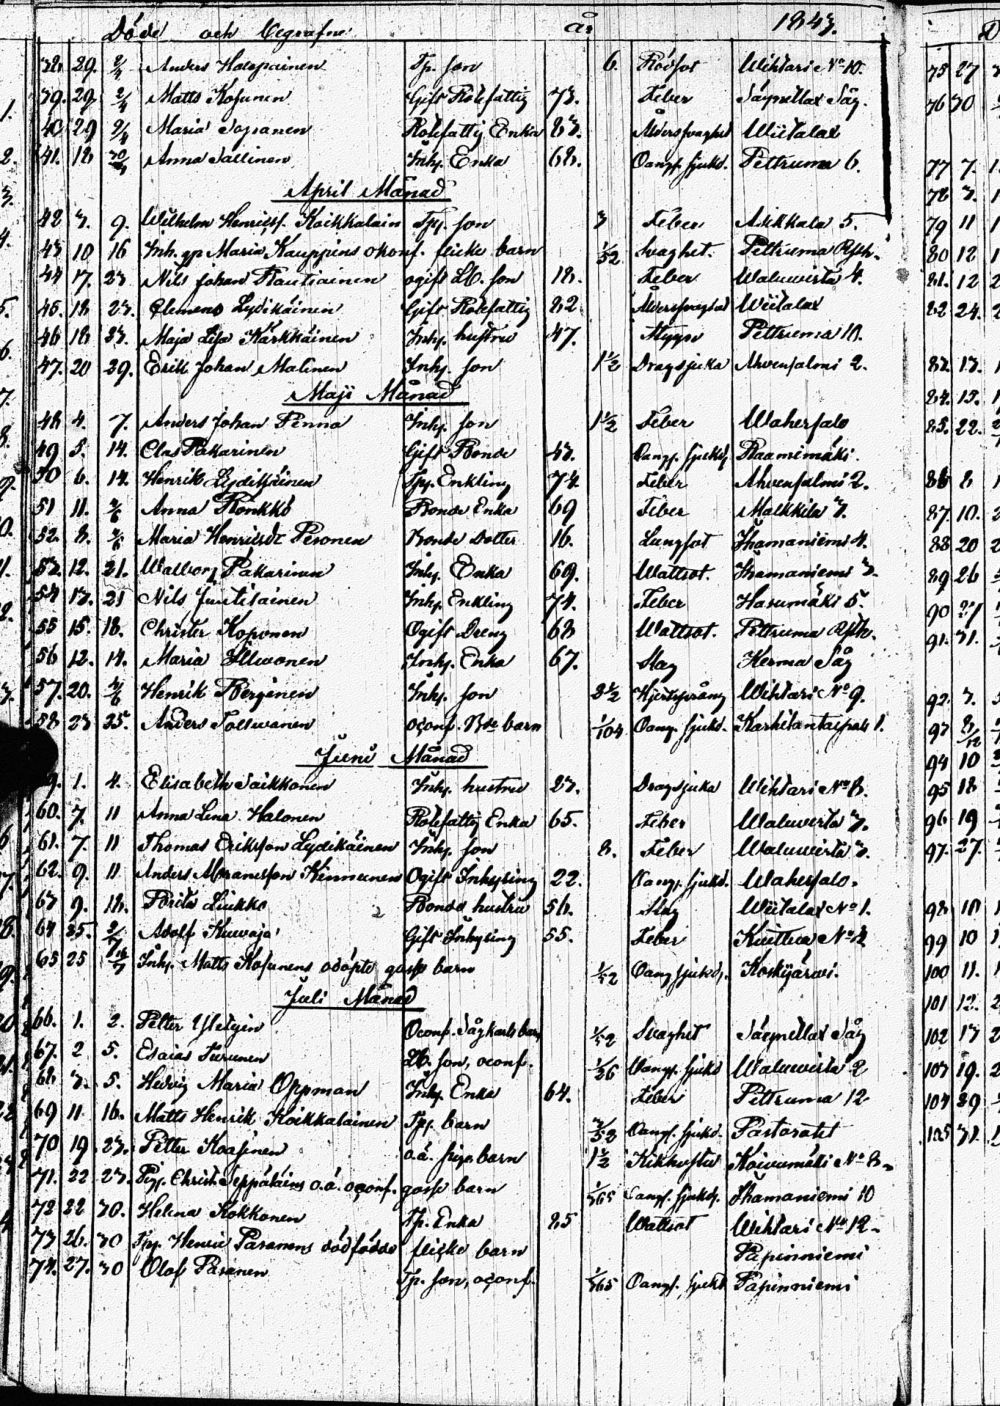 Döde och Begrafne år 1843.
38. 29. 2/4 Anders Haapainen Tp. son 6. Rödsot Wihtari No 10.
39. 29. 2/4 Matts Kosunen Gift Rotefattig 73. Feber Såg.
40 29 2/4 Maria Rotefattig Enka 83. Ålderssvaghet Wiitalax
41. 18 30/4 Anna Tallinen Inh. Enka 68. Oangf. sjukd. Pettruma 6.
April Månad
42 3. 9. Wilhelm Henrics. Koikkalain Tp. son 3 Feber Aikkala 5.
43 10 16 Inh. gp Maria Kauppins okonf. flicke barn 1/52 Svaghet. Pettruma
44 17. 23 Nils Johan Rautiainen ogift Lb. son 18. Feber Waluwirta 4.
45. 18 23. Clemens Lydikäinen Gift Rotefattig 82 Ålderssvaghet Wiitalax
46 18 23. Maja Lisa Kärkkäinen Inh. hustru 47. Pettruma 10.
47. 20 29. Erik Johan Malinen Inh. son 1 1/2 Dragsjuka Ahvensalmi 2.
Maji Månad
48 4. 7. Anders Johan Pinno Inh. son 1 1/2 Feber Wahersalo
49 5. 14. Clas Pakarinen Gift Bonde 43. Oangf. sjukd. Raanimäki
50 6. 14. Henrik Lydikäinen Tp. Enkling 74. Feber Ahvensalmi 2.
51 11. 2/6 Anna Ronkkö Bonde Enka 69 Feber Malkkila 3.
52. 8. 2/6 Maria Henricsdr Pesonen Bonde Dotter 16. Lungsot Ihamaniemi 4.
53. 12. 21. Walborg Pakarinen Inh. Enka 69. Wattsot. Ihamaniemi 3.
54 13. 21 Nils Juutilainen Inh. Enkling 74. Feber Hasumäki 5.
55 15. 18. Christer Koponen Ogift Dreng 68 Wattsot. Pettruma
56 12. 14. Maria Illwonen Inh. Enka 67. Slag Kerma Såg
57. 20. 4/6 Henrik Bergänen Inh. son 8 1/2 Hjertsprång Wihtari No 9.
58 23 25. Anders Tolwanen oconf. barn 1/104 Oangf. sjukd. 1.
Juni Månad
59. 1. 4. Elisabeth Taikkonen Inh. hustru 23. Dragsjuka Wihtari No 8.
60. 7. 11 Anna Lena Halonen Rotefattig Enka 65. Feber Waluwirta 3.
61. 7. 11 Thomas Eriksson Lydikäinen Inh. son 8. Feber Waluwirta 3.
62. 9. 11 Anders Abramsson Kinnunen Ogift Inhysing 22. Oangf. sjukd. Wahersalo.
63 9. 18. Brita Liukko Bonde hustru 56. Slag Wiitalax No 1.
64 25. 2/7 Adolf Kuivaja Gift Inhysing 55. Feber Kuittua No 2
65 25 Inh. Matts Kosunens odöpte gosse barn 1/52 Oangf. sjukd. Koskijärvi.
Juli Månad
66. 1. 2. Petter Yletyin Oconf. Sågkarls barn 1/52 Svaghet Såg
67. 2 5. Esaias Turunen Lb. son, oconf. 1/26 Oangf. sjukd Waluwirta 2
68 3. 5. Hedvig Maria Oppman Inh. Enka 64. Feber Pettruma 12
69 11 16. Matts Henrik Koikkalainen Tp. barn 3/52 Oangf. sjukd. Pastoratet
70 19 23. Petter Kosonen o.ä. pigo barn 1 1/2 Kikhosta Koivumäki No 8.
71. 22 23. Pig. Christ. Seppäläins o.ä. oconf. gosse barn 1/365 Oangf. sjukd. Ihamaniemi 10
72 22 30. Helena Kokkonen Tp. Enka 85 Wattsot Wihtari No 12.
73 26. 30 Tp. Henric Pasanens dödfödde flicke barn Papinniemi
74. 27. 30 Olof Pasanen Tp. son, oconf. 1/365 Oangf. sjukd Papinniemi
75 27
76 30
77 7.
78 3.
79 11
80 12
81. 12
82 24.
83. 13.
84. 15.
85. 22.
86 8
87. 10.
88 20
89 26
90 27
91. 31.
92. 3.
93 8/12
94 10
95 18
96 19
97. 27.
98 10
99 10
100 11.
101 12.
102 13
103 19.
104 29
105 31.